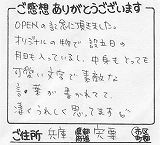 ご感想 ありがとうございます
OPENの記念に頂きました。
オリジナルの物で 設立日の
月日も入っているし、中身もとても
可愛い文字で素敵な
言葉が書かれてて
凄くうれしく思ってます
ご住所 兵庫 都道府県 宍粟 市区町村